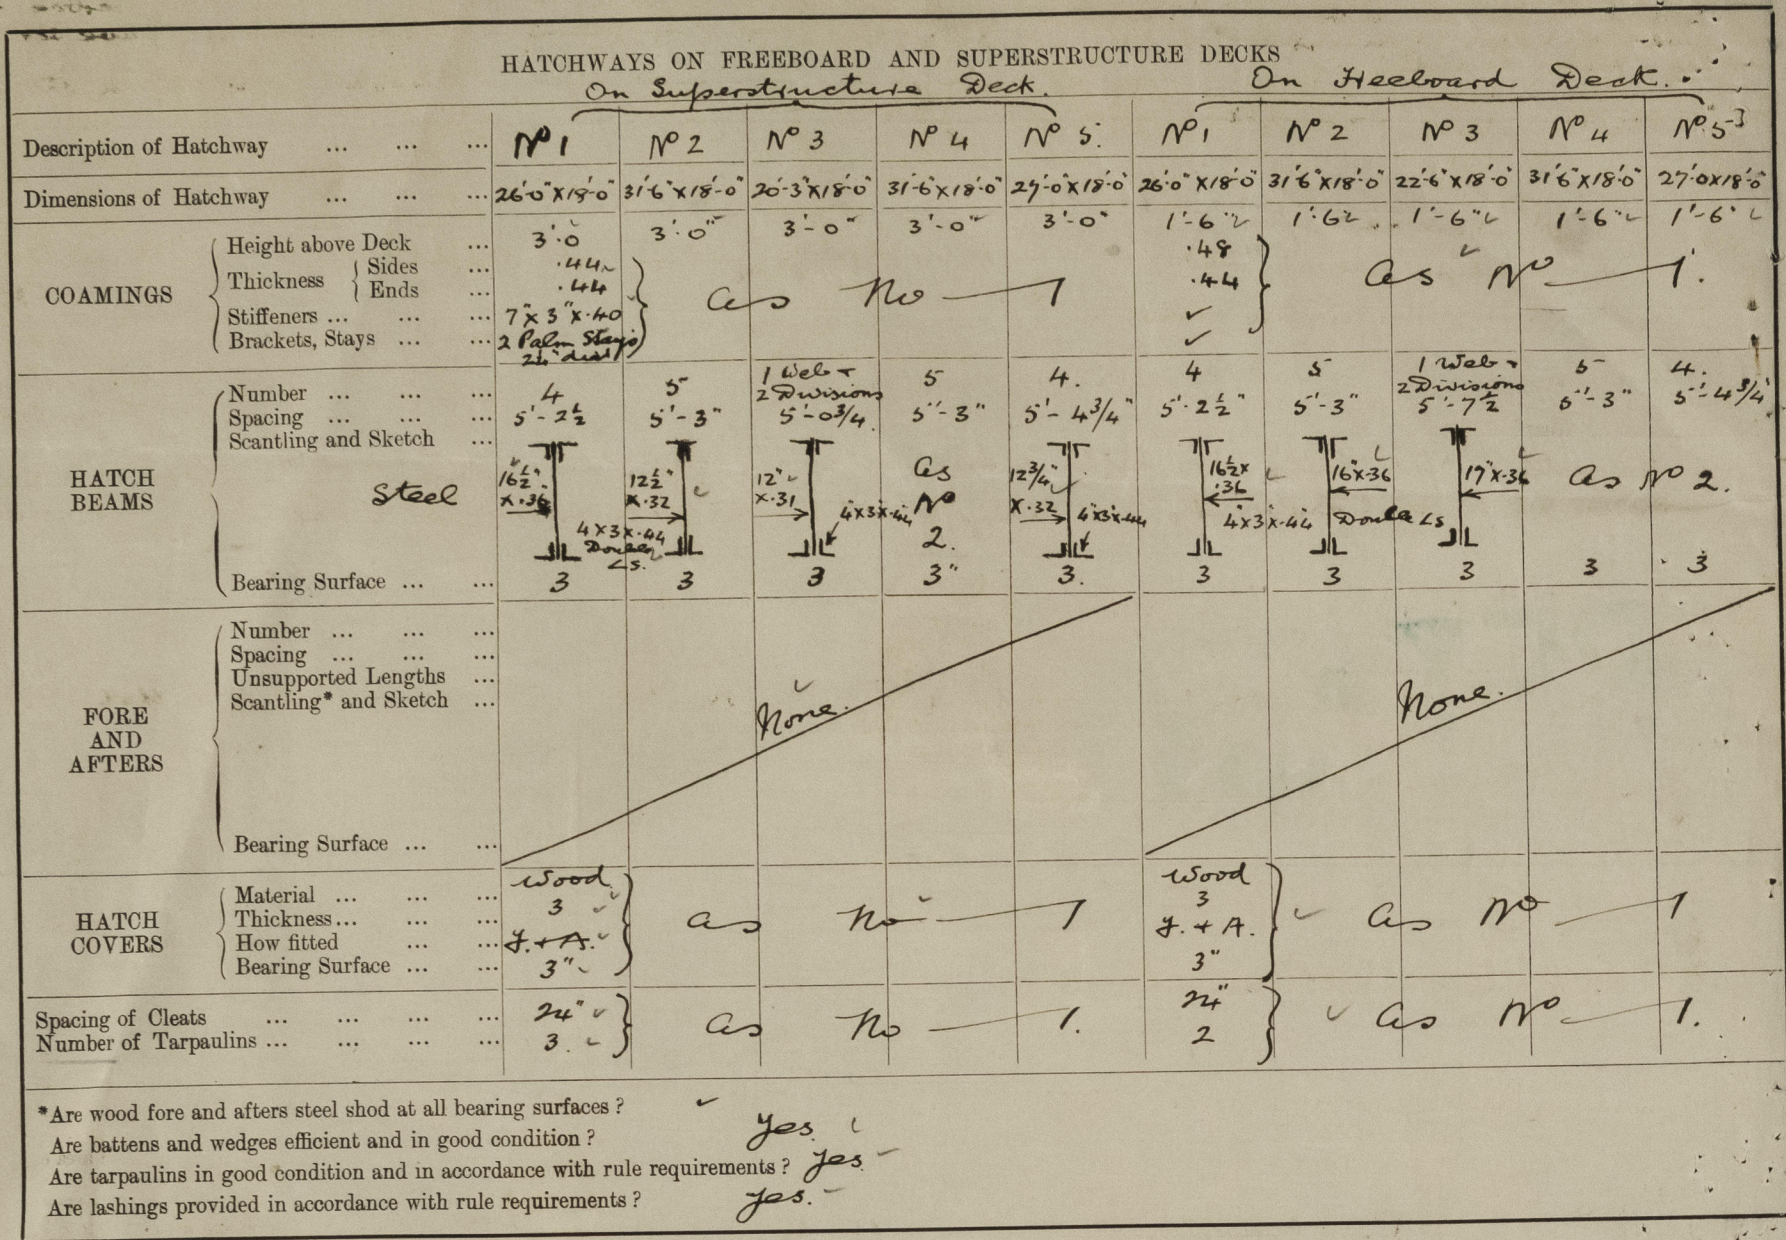 HATCHWAYS ON FREEBOARD AND SUPERSTRUCTURE DECKS
On Superstructure Deck. On Freeboard Deck.
Description of Hatchway ... ... ... No 1 No 2 No 3 No 4 No 5. No 1 No 2 No 3 No 4 No 5
Dimensions of Hatchway ... ... ... 26'-0"x18'-0" 31'-6"x18'-0" 20'-3"x18'-0" 31'-6"x18'-0" 27'-0"x18'-0" 26'-0"x18'-0" 31'-6"x18'-0" 22'-6"x18'-0" 31'-6"x18'-0" 27'-0x18'-0"
COAMINGS
Height above Deck ... 3'-0 3'-0" 3'-0" 3'-0" 3'-0" 1'-6" 1'-6 1'-6" 1'-6" 1'-6"
Thickness { Sides ... .44 .48
Ends ... .44 as No 1 .44 as No 1.
Stiffeners ... ... ... 7"x3"x.40 ✓
Brackets, Stays ... ... 2 Palm Stays ✓
HATCH BEAMS
Number ... ... ... 4 5 1 Web + 2 Divisions 5 4. 4 5 1 Web + 2 Divisions 5 4.
Spacing ... ... ... 5'-2½ 5'-3" 5'-0¾ 5'-3" 5'-4¾" 5'-2½" 5'-3" 5'-7½ 5'-3" 5'-4¾"
Scantling and Sketch ...
Steel 16½" x.36 12½" x.32 12" x.31 as No 2. 12¾" x.32 16½x .36 16"x.36 17"x.36 as No 2.
4x3x.44 Double Ls. 4x3x.44 4x3x.44 4x3x.44 Double Ls
Bearing Surface ... ... 3 3 3 3" 3. 3 3 3 3 3
FORE AND AFTERS
Number ... ... ...
Spacing ... ... ...
Unsupported Lengths ...
Scantling* and Sketch ...
None. None.
Bearing Surface ... ...
HATCH COVERS
Material ... ... ... Wood Wood
Thickness... ... ... 3 3
How fitted ... ... F. + A. as No 1 F. + A. as No 1
Bearing Surface ... ... 3" 3"
Spacing of Cleats ... ... ... ... 24" 24"
Number of Tarpaulins ... ... ... ... 3. as No 1. 2 as No 1.
*Are wood fore and afters steel shod at all bearing surfaces ? ✓
Are battens and wedges efficient and in good condition ? Yes.
Are tarpaulins in good condition and in accordance with rule requirements ? Yes
Are lashings provided in accordance with rule requirements ? Yes.